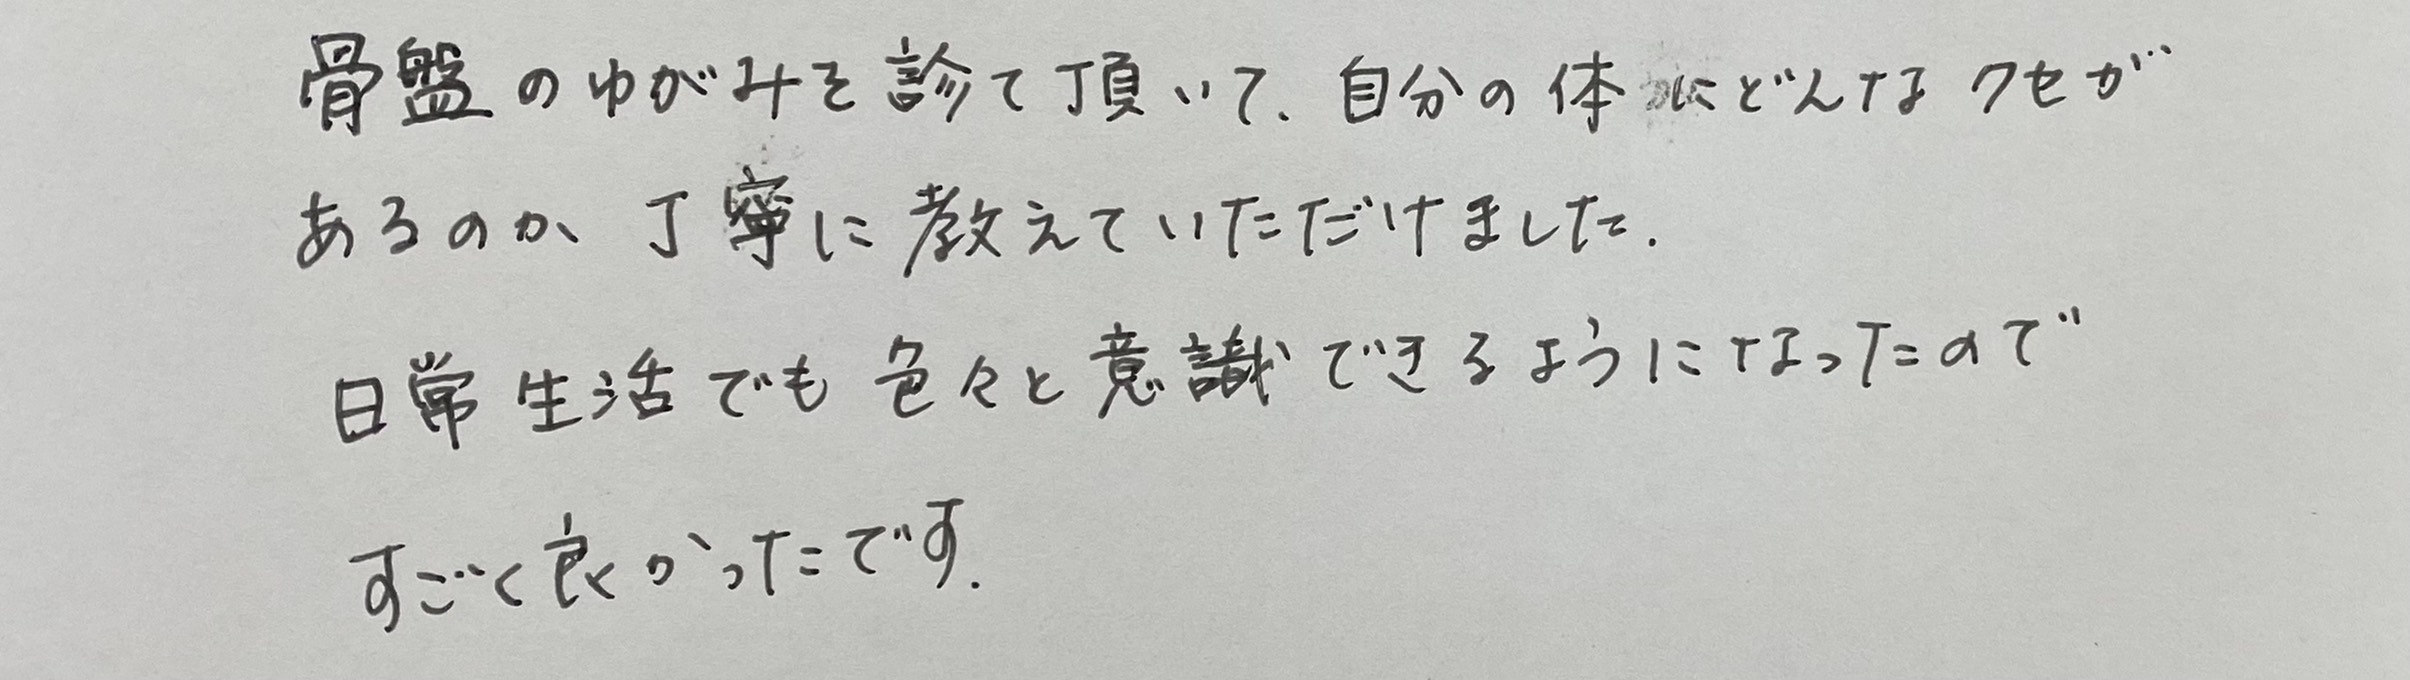 骨盤のゆがみを診て頂いて、自分の体にどんなクセが
あるのか、丁寧に教えていただけました。
日常生活でも色々と意識できるようになったので
すごく良かったです。